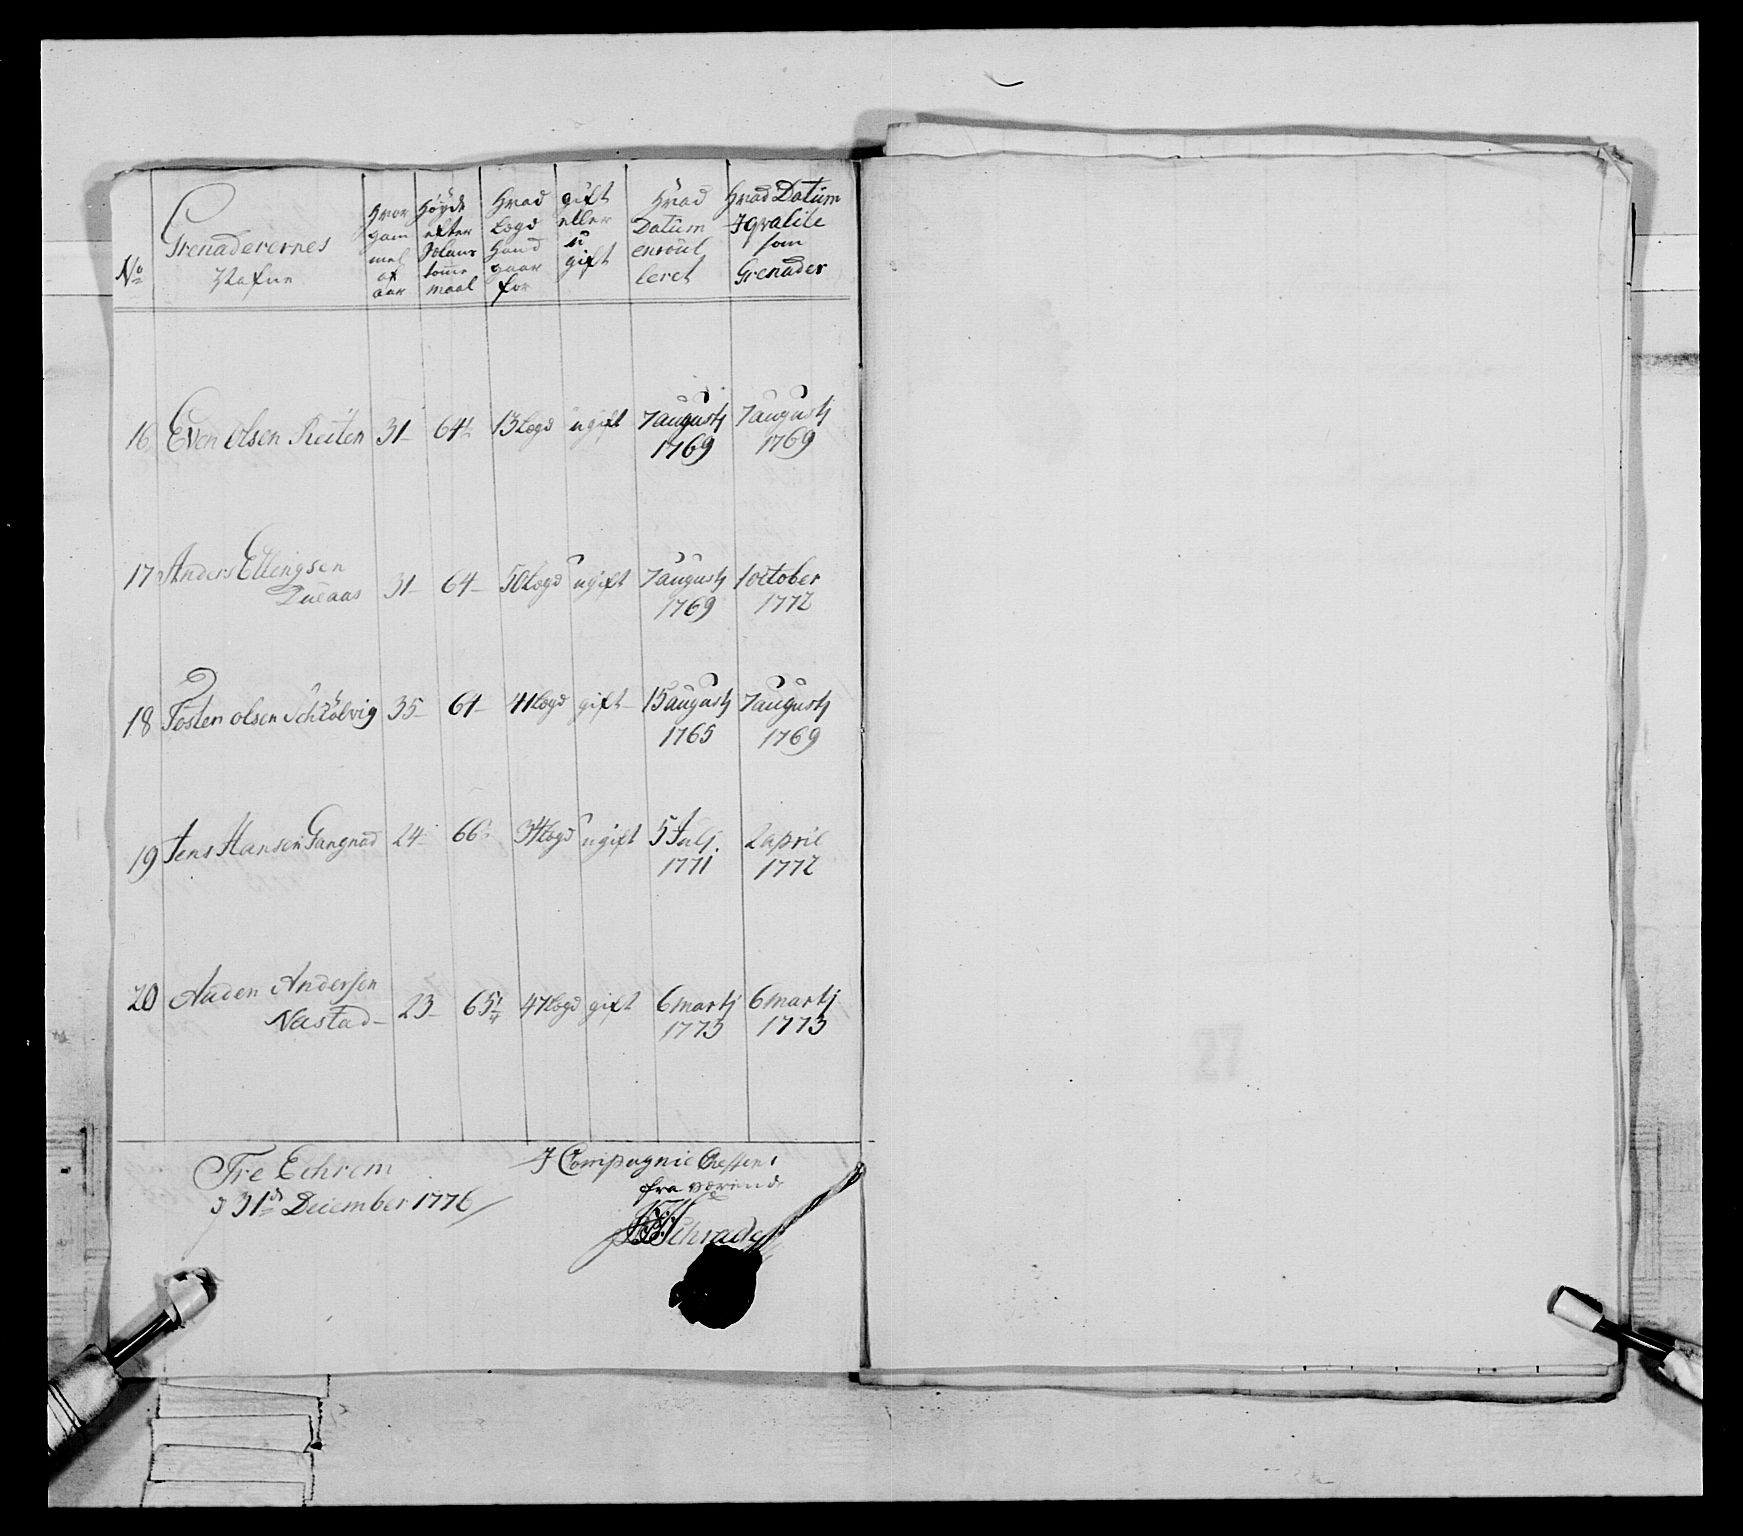 No Grenaderernes Nafne | Hvor gam mel af aar | Høyde efter Polans tomme maal | Hvad Lægd Hand gaar for | gift eller u gift | Hvad Datum enroul leret | Hvad Datum I qvalite som Grenader
16 Even Olsen Ruten 31 64½ 13 Lægd ugift 7 augustj 1769 7 augustj 1769
17 Anders Ellingsen
31 64 50 Lægd ugift 7 augustj 1769 1 october 1772
18 Tosten olsen Schiölvig 35 64 41 Lægd gift 15 augustj 1765 7 augustj 1769
19 Jens Hansen Gangnad 24 66 34 Lægd ugift 5 Julj 1771 2 april 1772
20 Auden Andersen
Nastad 23 65¼ 47 Lægd gift 6 martj 1773 6 martj 1773
I Compagnie Cheffens
fra værende
31 December 1776
Schrader